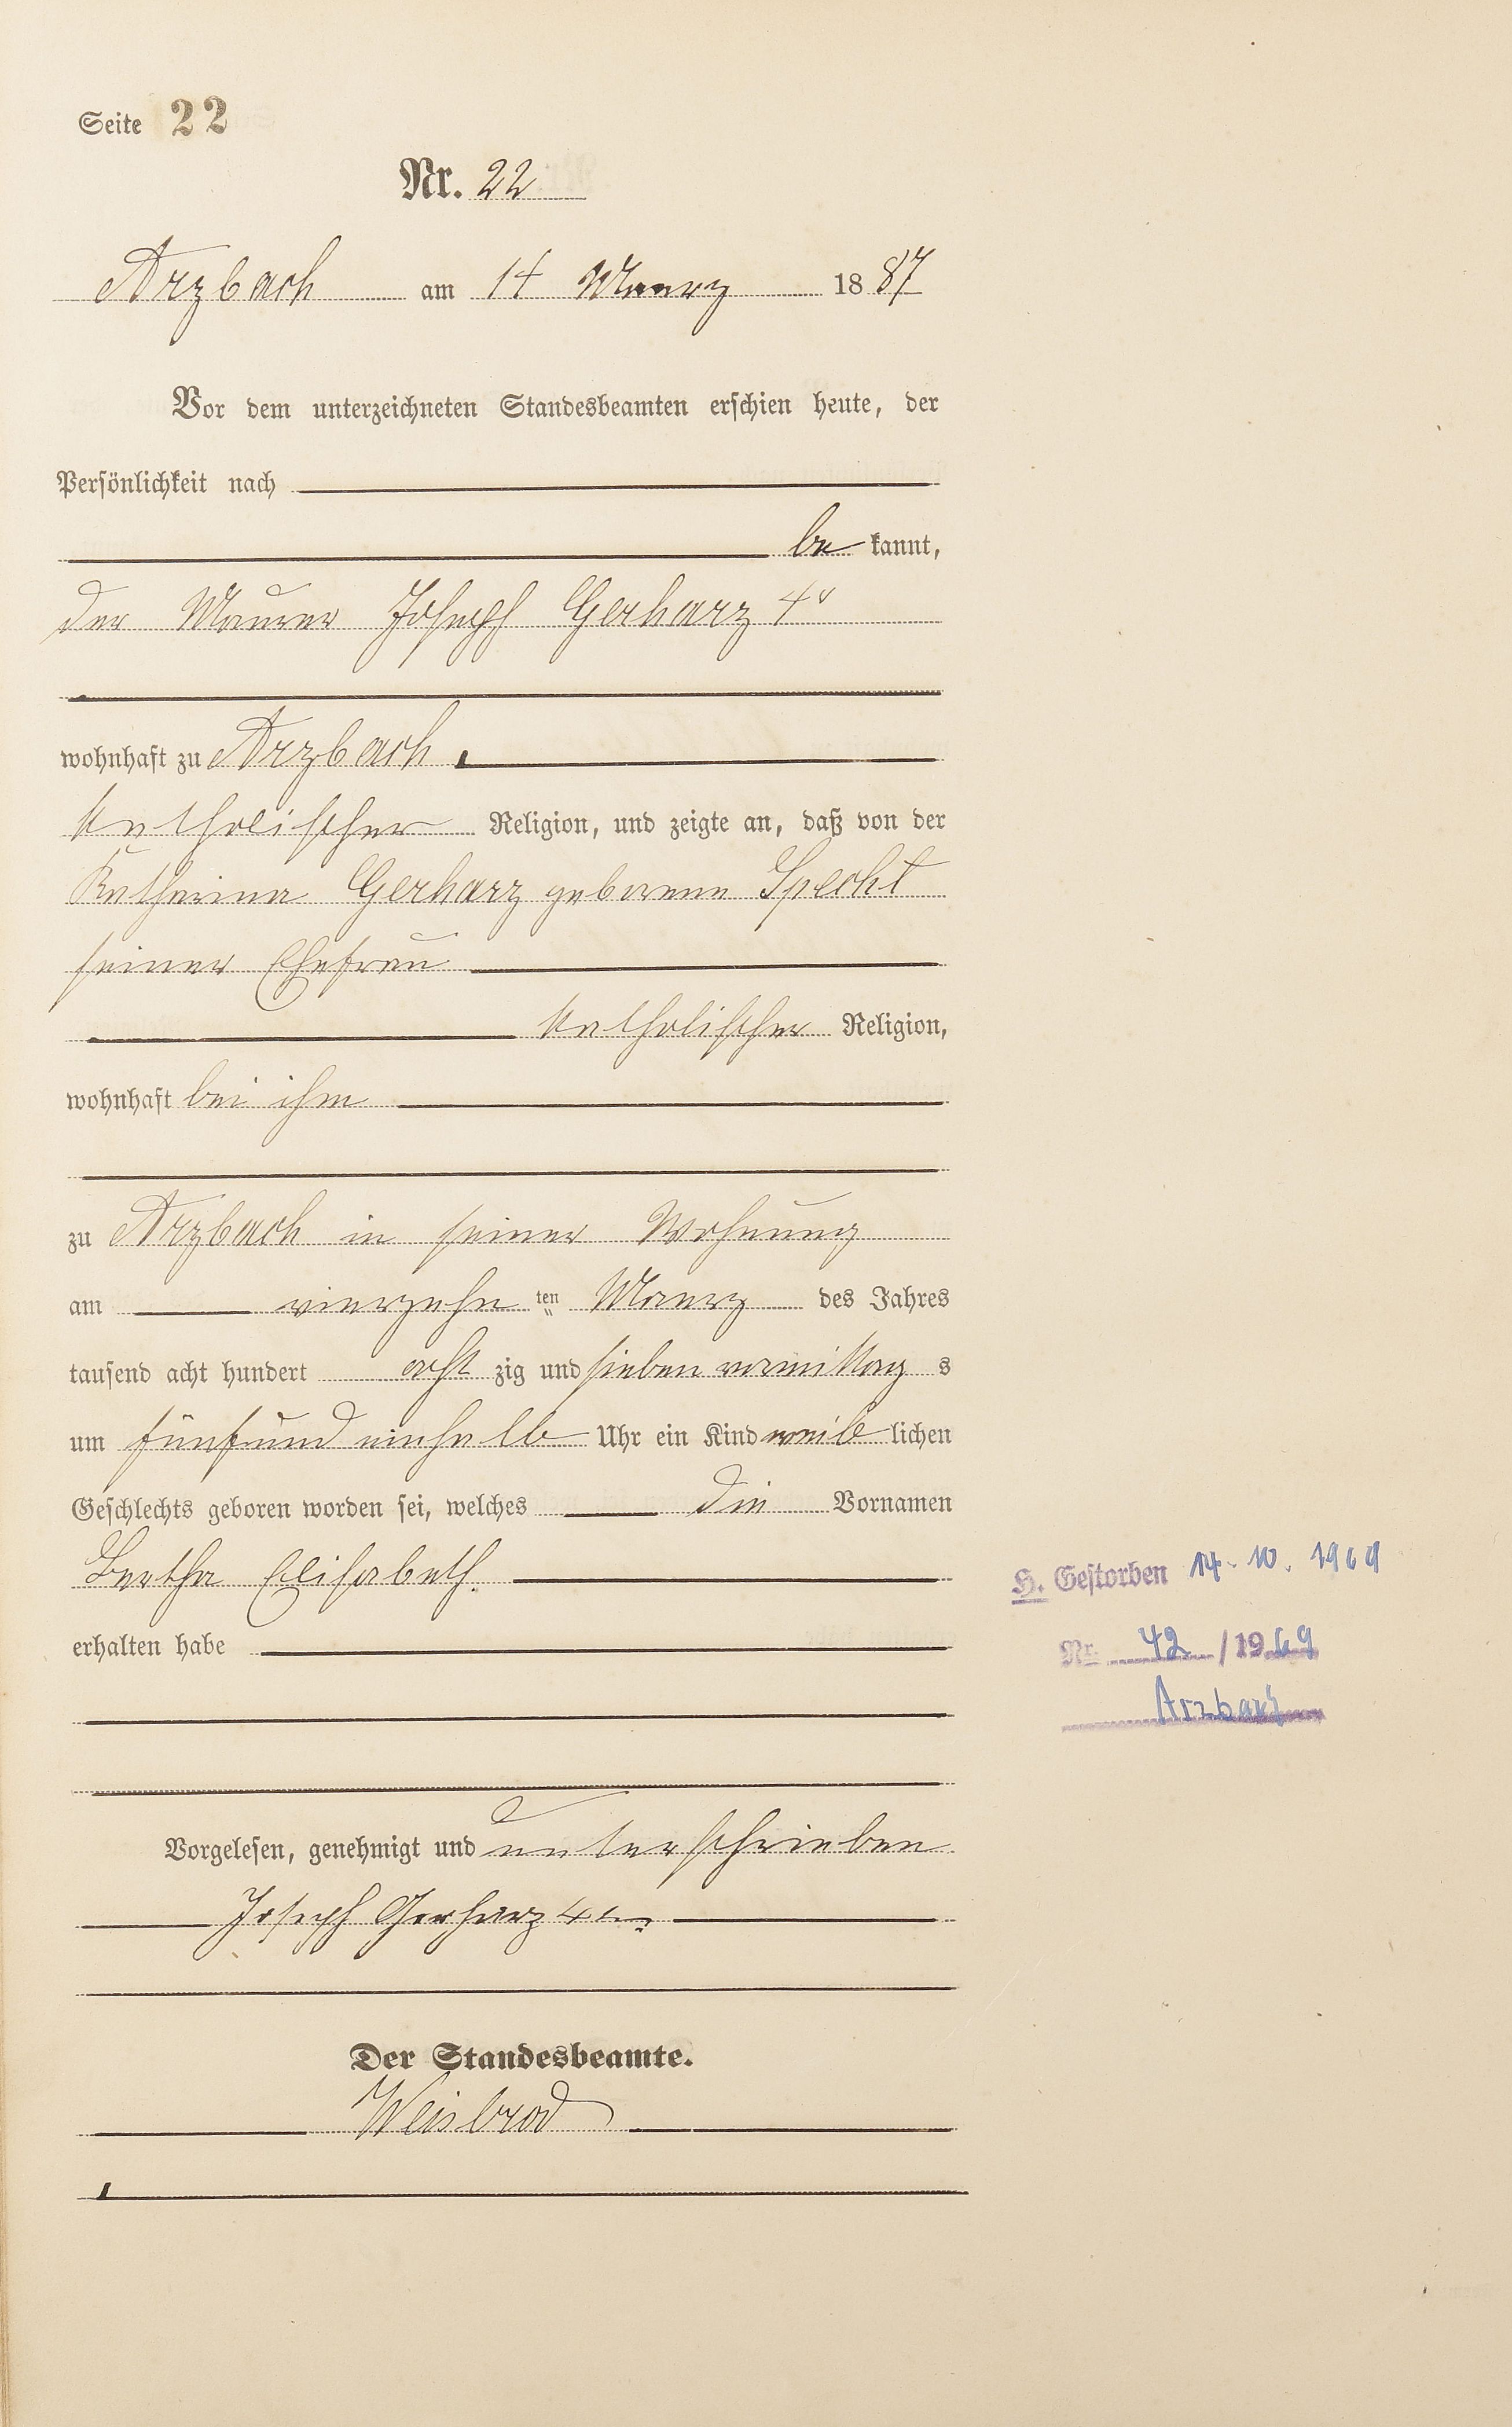 Seite 22
Nr. 22
Arzbach am 14 Maerz 1887
Vor dem unterzeichneten Standesbeamten erschien heute, der
Persönlichkeit nach
be kannt,
der Maurer Joseph Gerharz 4r
wohnhaft zu Arzbach
katholischer Religion, und zeigte an, daß von der
Katharina Gerharz geborene Specht
seiner Ehefrau
katholischer Religion,
wohnhaft bei ihm
zu Arzbach in seiner Wohnung
am vierzehn ten Maerz des Jahres
tausend acht hundert acht zig und sieben vormittag s
um fünfundeinhalb Uhr ein Kind weib lichen
Geschlechts geboren worden sei, welches die Vornamen
Bertha Elisabeth.
erhalten habe
Vorgelesen, genehmigt und unterschrieben
Joseph Gerharz 4
Der Standesbeamte.
Weisbrod
H. Gestorben 14. 10. 1969
Nr. 42 / 1969
Arzbach